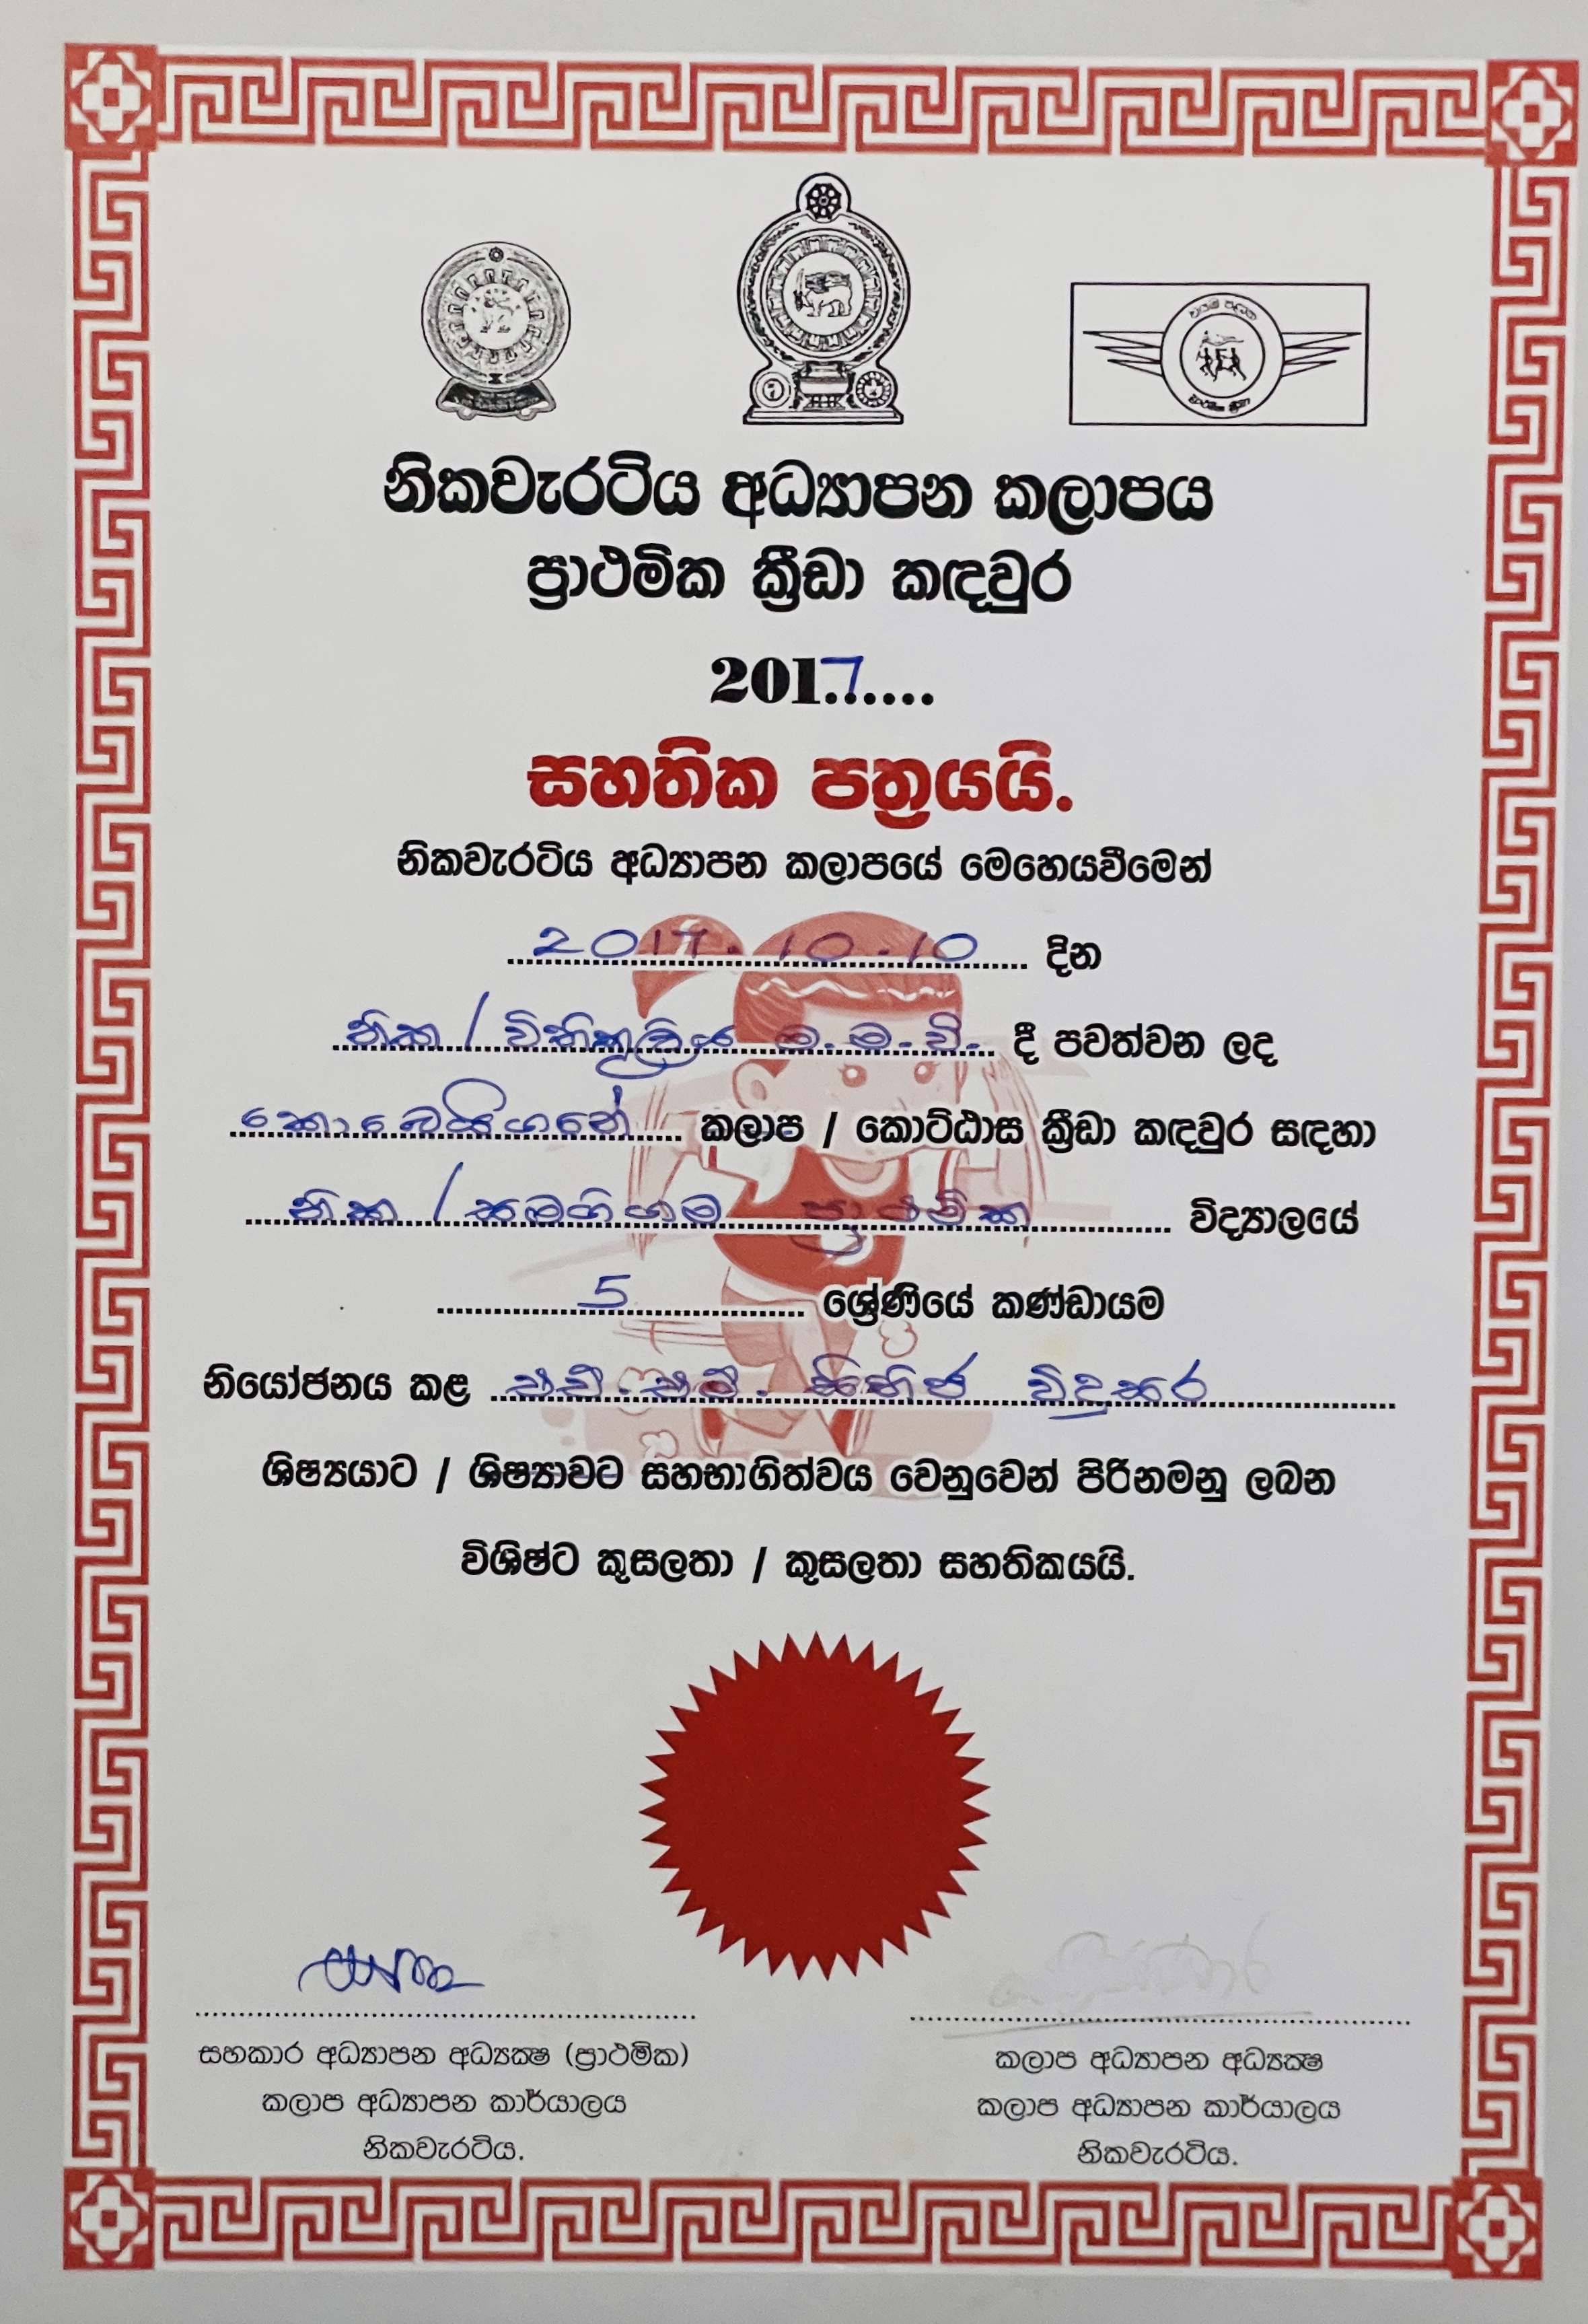 නිකවැරටිය අධ්‍යාපන කලාපය
ප්‍රාථමික ක්‍රීඩා කඳවුර
2017......
සහතික පත්‍රයයි.
නිකවැරටිය අධ්‍යාපන කලාපයේ මෙහෙයවීමෙන්
2017.10.10 දින
නික / ම.ම.වි. දී පවත්වන ලද
කොබෙයිගනේ කලාප / කොට්ඨාස ක්‍රීඩා කඳවුර සඳහා
නික / සමගිගම ප්‍රාථමික විද්‍යාලයේ
5 ශ්‍රේණියේ කණ්ඩායම
නියෝජනය කළ එච්.එම්. විදුසර
ශිෂ්‍යයාට / ශිෂ්‍යාවට සහභාගිත්වය වෙනුවෙන් පිරිනමනු ලබන
විශිෂ්ට කුසලතා / කුසලතා සහතිකයයි.
සහකාර අධ්‍යාපන අධ්‍යක්ෂ (ප්‍රාථමික)
කලාප අධ්‍යාපන කාර්යාලය
නිකවැරටිය.
කලාප අධ්‍යාපන අධ්‍යක්ෂ
කලාප අධ්‍යාපන කාර්යාලය
නිකවැරටිය.